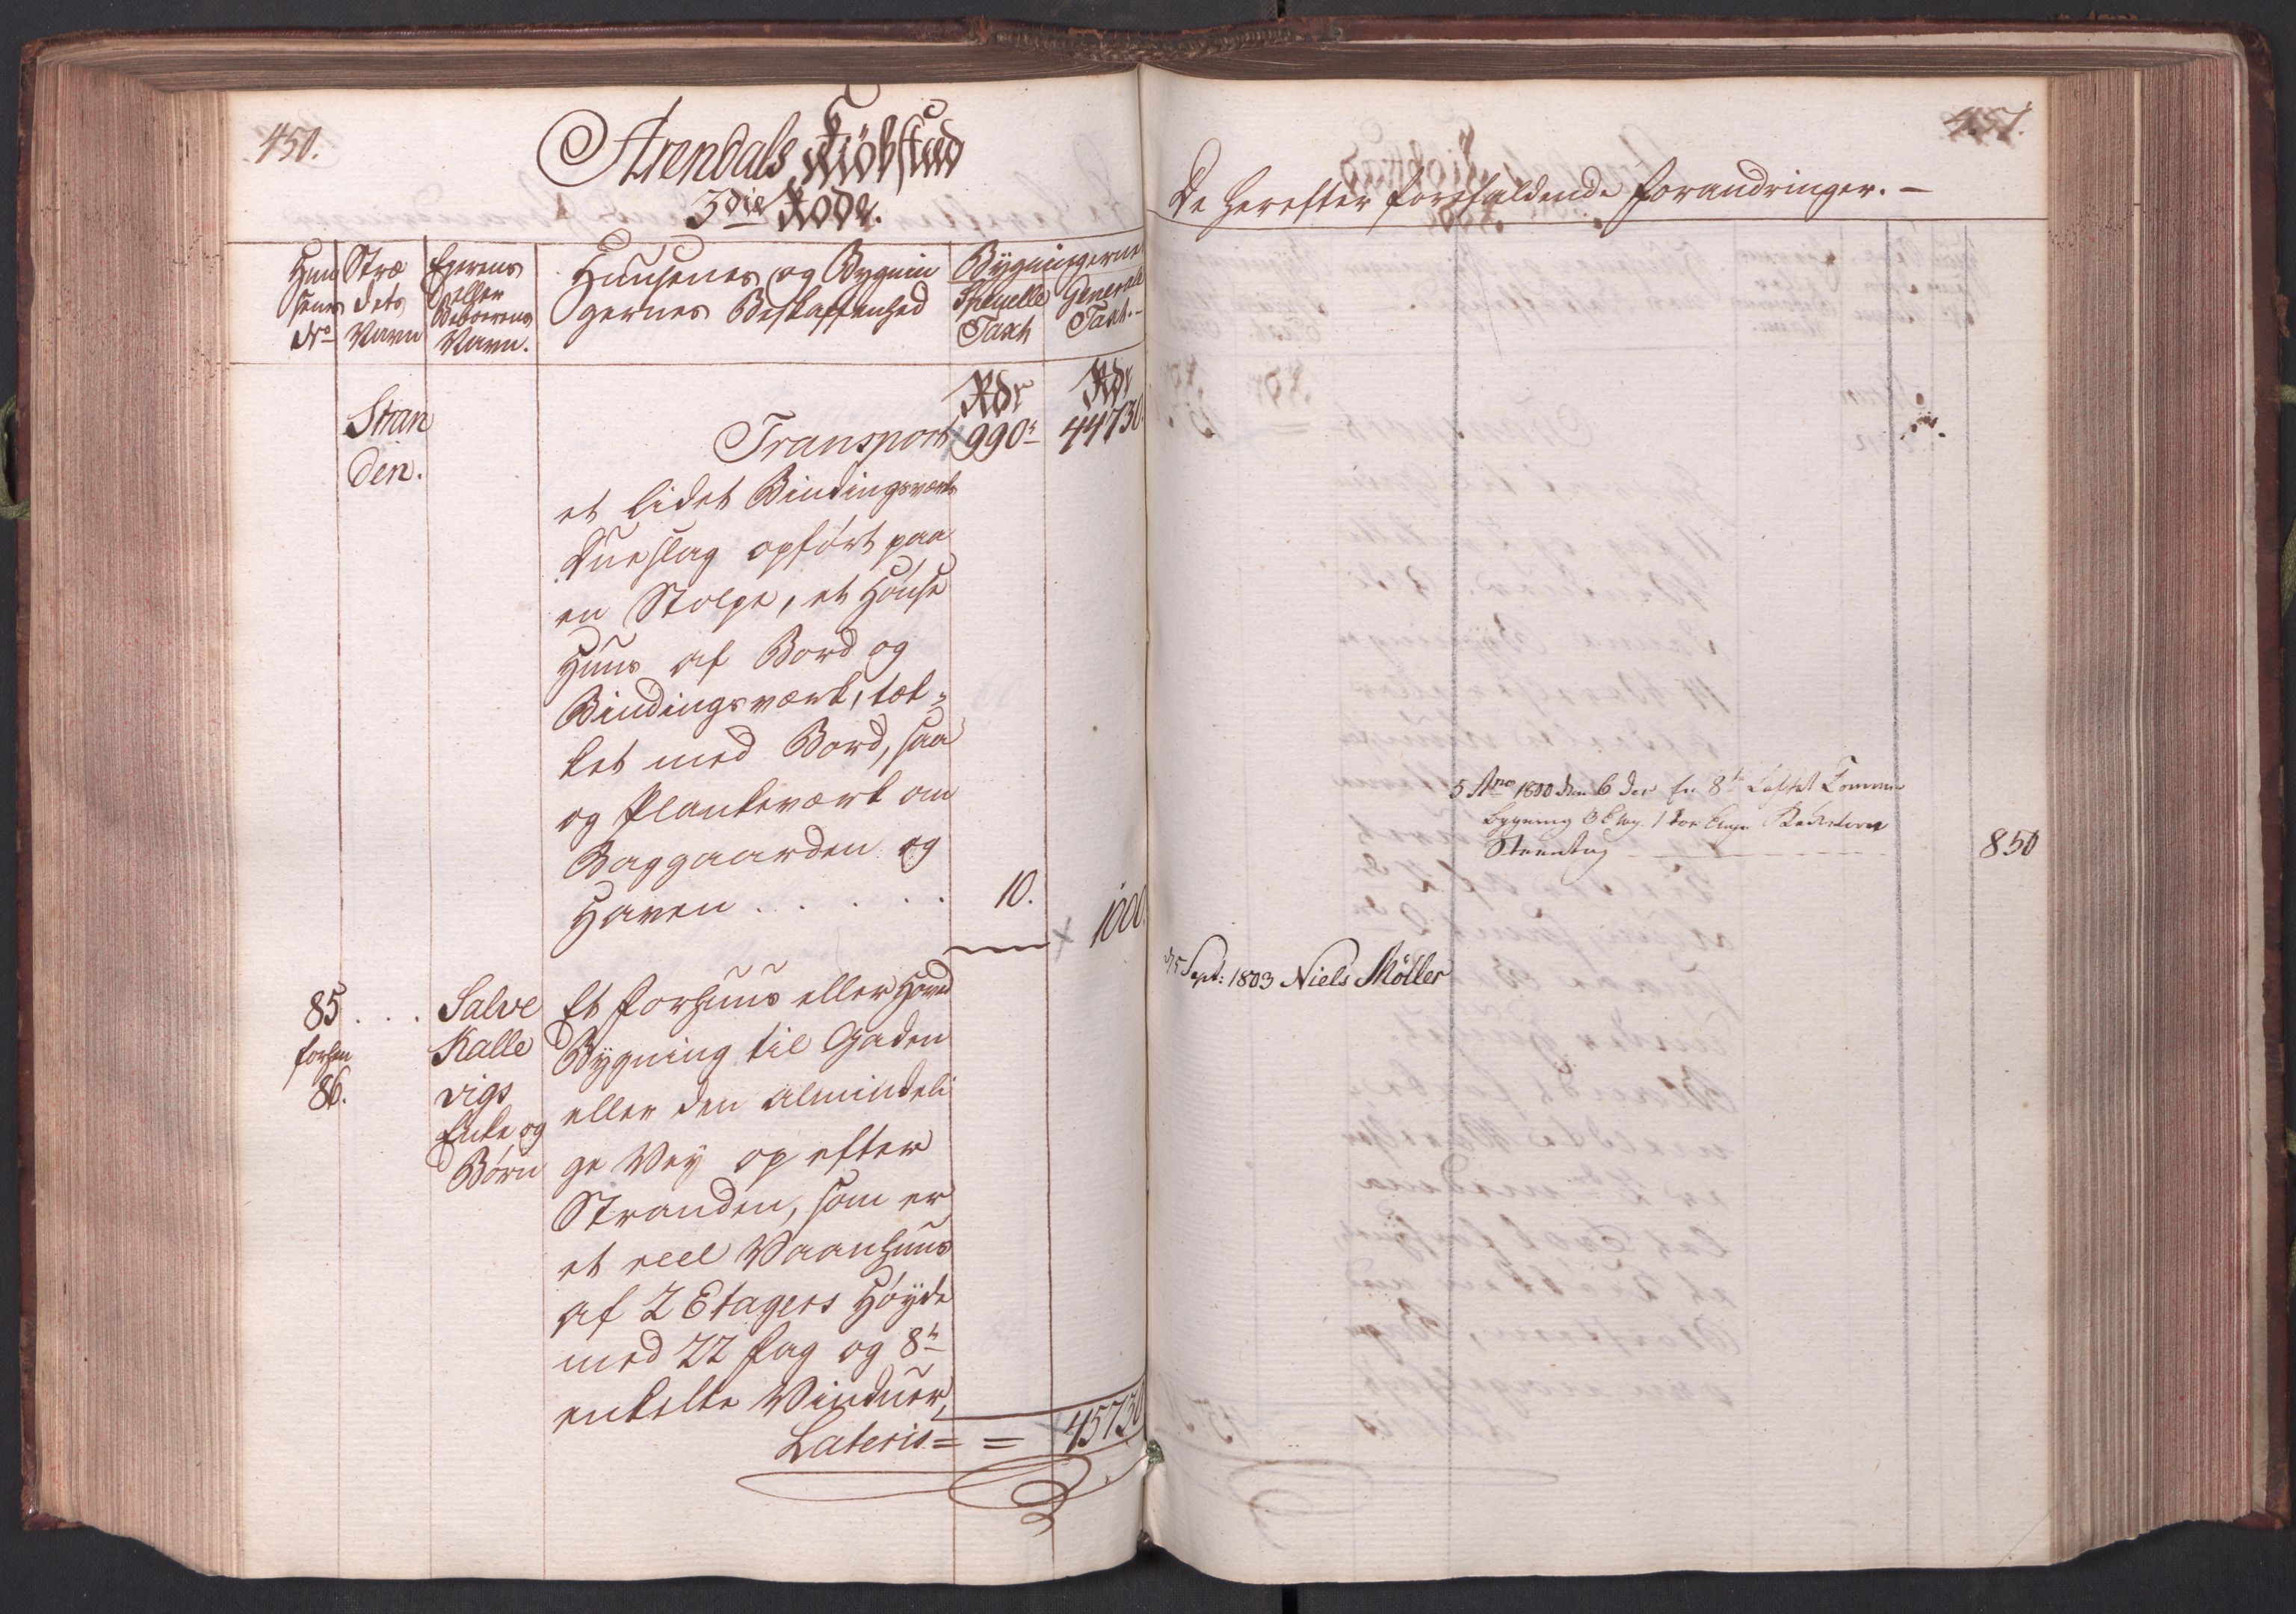 450.
Arendals Kiöbstæd
3die Rode.
Huu
senes
No
Stræ
dets
Navn
Eyerens
eller
Beboerens
Navn.
Huusenes og Bygnin
gernes Beskaffenhed
Bygningernes
Speuelle
Taxt
Generale
Taxt.
Rdr
Rdr
Stran
den.
Transport 990 44730
et lidet Bindingsværks
Dueslag opført paa
en Stolpe, et Hønse
Huus af Bord og
Bindingsværk, tæk-
ket med Bord, saa
og Plankeværk om
Baggaarden og
Haven . . . . . . 10.
1000
85 . . .
forhen
86.
Salve
Kalle
vigs
Enke og
Börn
Et Forhuus eller Hoved
Bygning til Gaden
eller den almindeli
ge Vey op efter
Stranden, som er
et reel Vaanhuus
af 2 Etagers Høyde
med 22 Fag og 8te
enkelte Vinduer,
Lateris = = 45730
451.
De herefter forefaldende Forandringer. -
5 Ao 1800 den 6 Dec En 8te
Bygning
850
Sept: 1803 Niels Möller